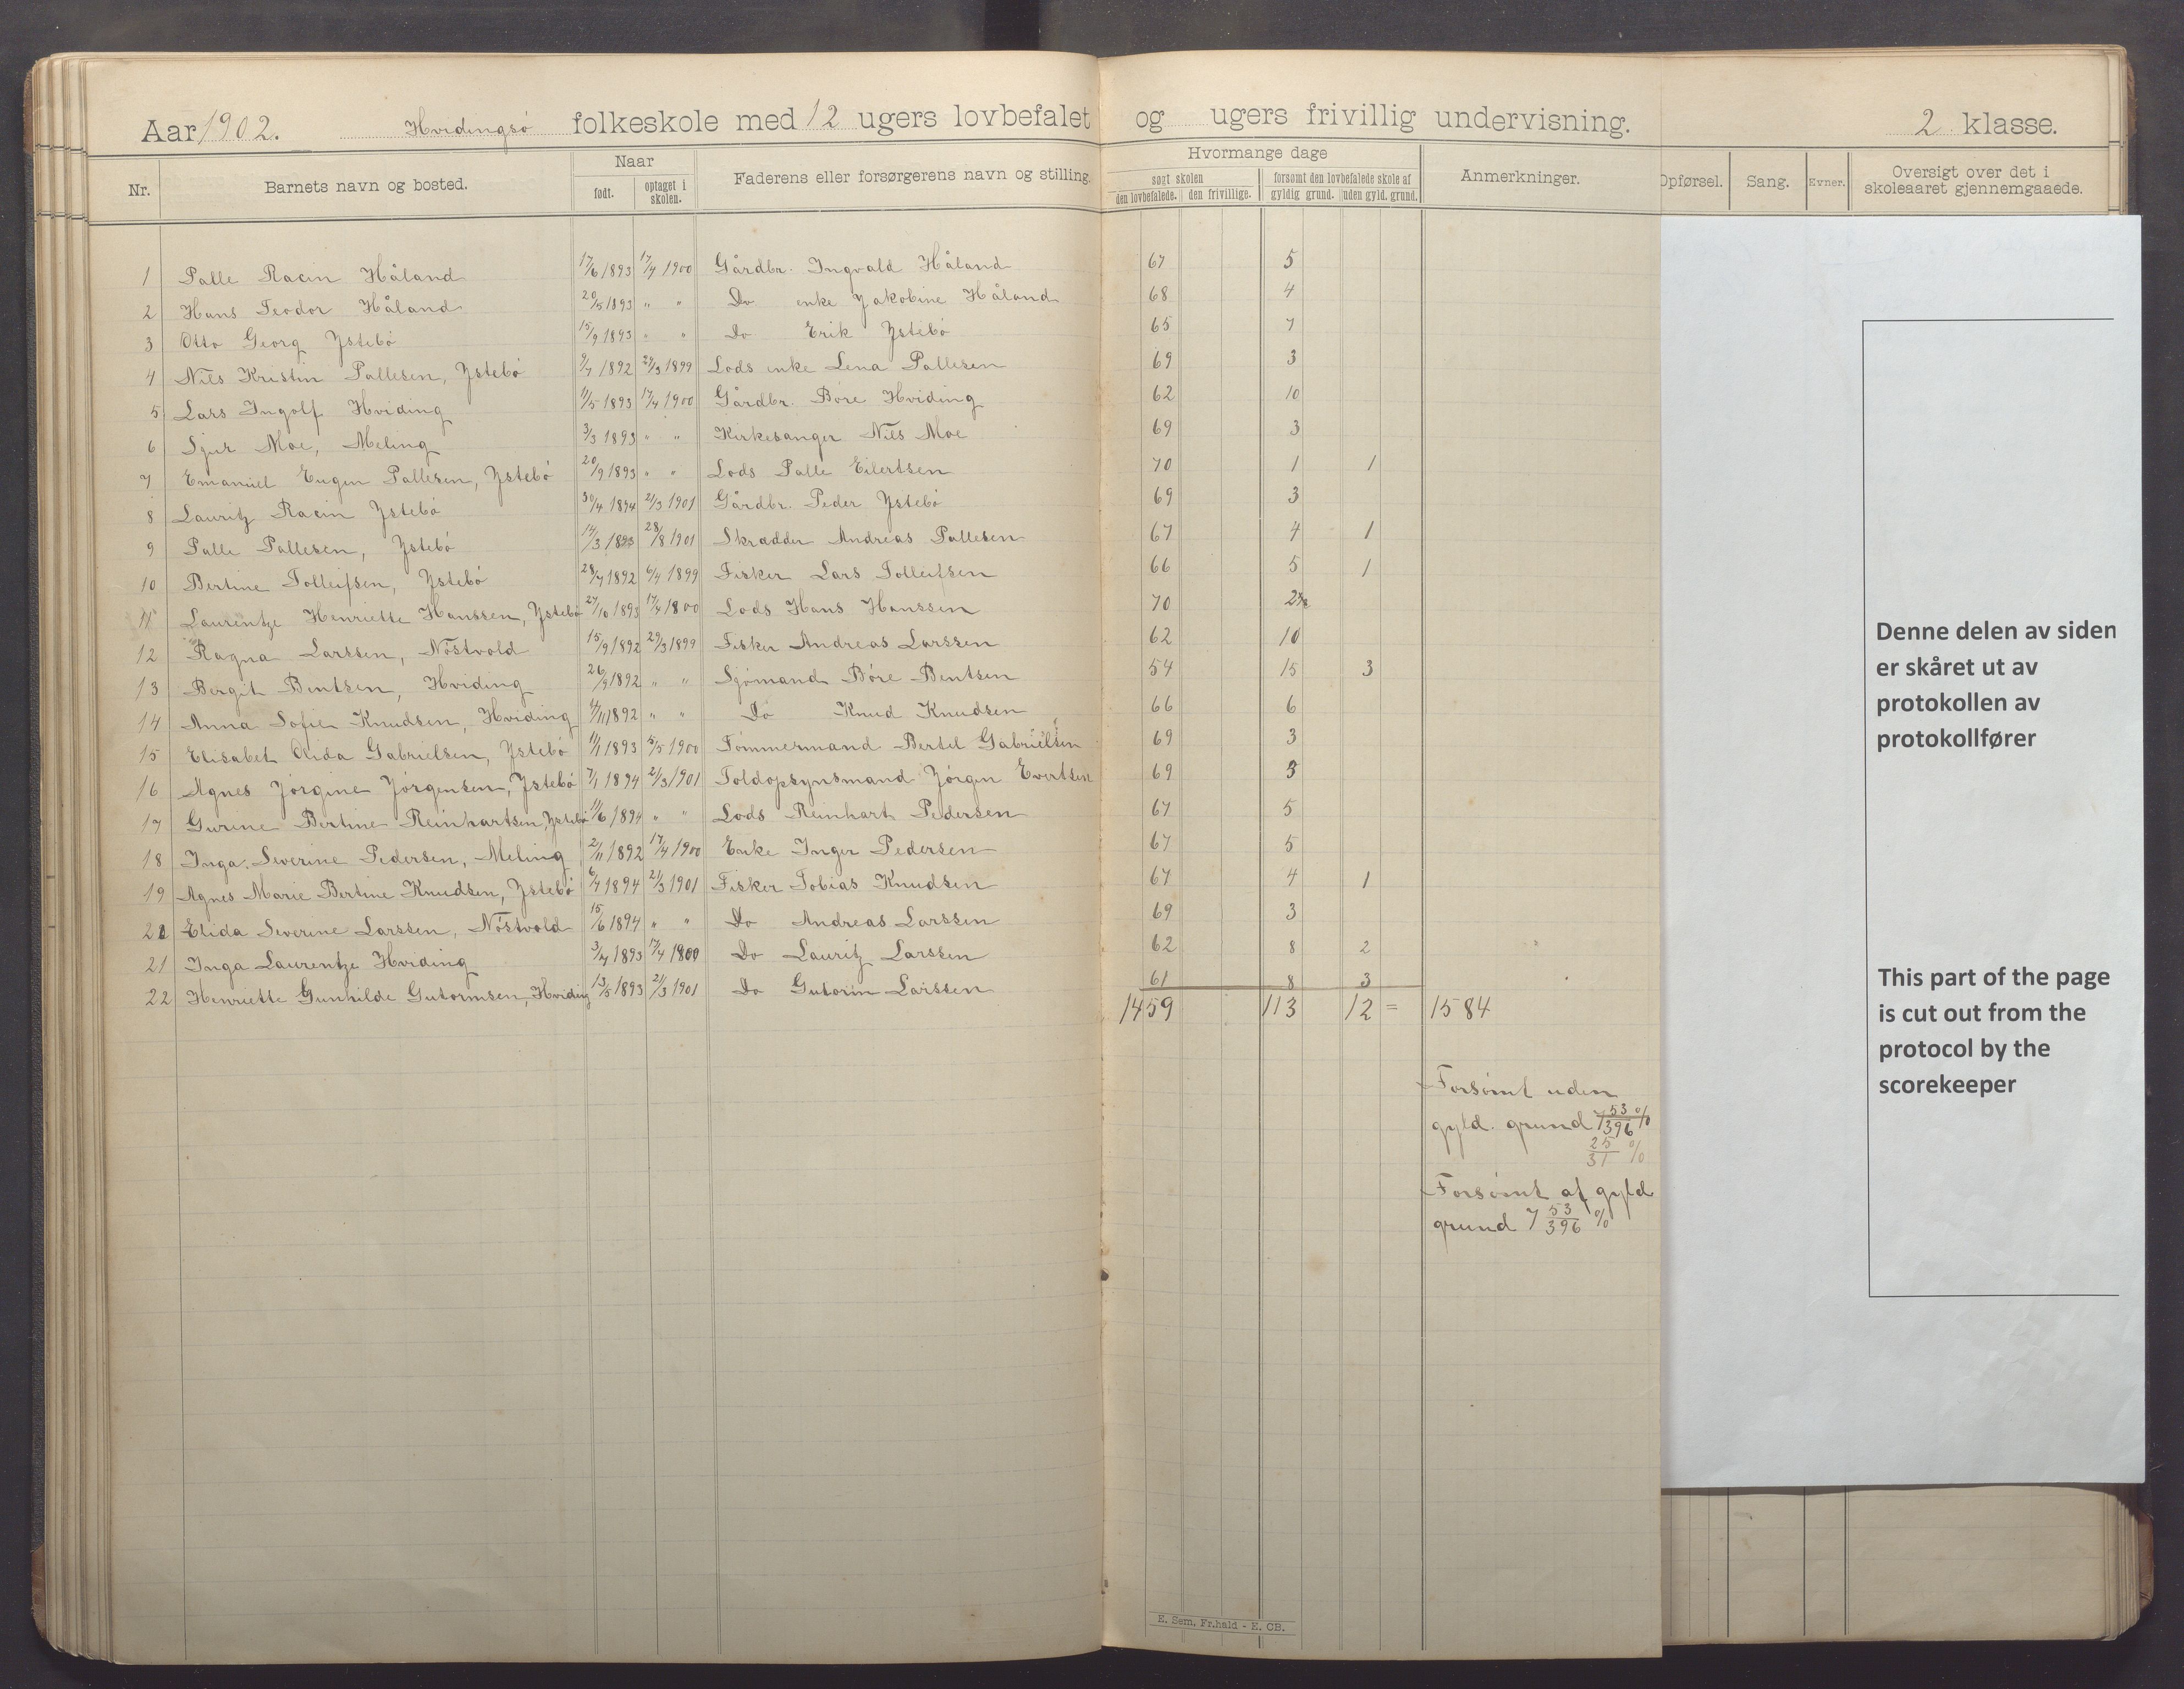 Aar 1902. Hvidingsö folkeskole med 12 ugers lovbefalet og ugers frivillig undervisning. 2 klasse.
Nr. Barnets navn og bosted. Naar født. optaget i skolen. Faderens eller forsørgerens navn og stilling. Hvormange dage søgt skolen den lovbefalede. den frivillige. forsømt den lovbefalede skole af gyldig grund. uden gyld. grund. Anmerkninger. Opførsel. Sang. Evner. Oversigt over det i skoleaaret gjennemgaaede.
1 Palle Racin Håland 17/6 1893 17/4 1900 Gårdbr. Ingvald Håland 67 5
2 Hans Teodor Håland 20/5 1893 " " Do enke Jakobine Håland 68 4
3 Otto Georg Ystebö 15/9 1893 " " Do Erik Ystebö 65 7
4 Nils Kristin Pallesen, Ystebö 9/7 1892 29/3 1899 Lods enke Lena Pallesen 69 3
5 Lars Ingolf Hviding 11/5 1893 17/4 1900 Gårdbr. Böre Hviding 62 10
6 Sjur Moe, Meling 3/3 1893 " " Kirkesanger Nils Moe 69 3
7 Emanuel Eugen Pallesen, Ystebö 20/9 1893 " " Lods Palle Eilertsen 70 1 1
8 Lauritz Racin Ystebö 30/4 1894 21/3 1901 Gårdbr. Peder Ystebö 69 3
9 Palle Pallesen, Ystebö 14/3 1893 28/8 1901 Skrædder Andreas Pallesen 67 4 1
10 Bertine Tolleifsen, Ystebö 28/7 1892 6/4 1899 Fisker Lars Tolleifsen 66 5 1
11 Laurentze Henriette Hanssen, Ystebö 27/10 1893 17/4 1800 Lods Hans Hanssen 70 2
12 Ragna Larssen, Nöstvold 15/9 1892 29/3 1899 Fisker Andreas Larssen 62 10
13 Bergit Bentsen, Hviding 26/9 1892 " " Sjömand Böre Bentsen 54 15 3
14 Anna Sofie Knudsen, Hviding 4/11 1892 " " Do Knud Knudsen 66 6
15 Elisabet Olida Gabrielsen, Ystebö 11/1 1893 5/5 1900 Tömmermand Bertel Gabrielsen 69 3
16 Agnes Jörgine Jörgensen, Ystebö 7/1 1894 21/3 1901 Toldopsynsmand Jörgen Evertsen 69 3
17 Gurine Bertine Reinhartsen, Ystebö 11/6 1894 " " Lods Reinhart Pedersen 67 5
18 Inga Severine Pedersen, Meling 2/11 1892 17/4 1900 Enke Inger Pedersen 67 5
19 Agnes Marie Bertine Knudsen, Ystebö 6/7 1894 21/3 1901 Fisker Tobias Knudsen 67 4 1
20 Elida Severine Larssen, Nöstvold 15/6 1894 " " Do Andreas Larssen 69 3
21 Inga Laurentze Hviding 3/4 1893 17/4 1900 Do Lauritz Larssen 62 8 2
22 Henriette Gunhilde Gutormsen, Hviding 13/5 1893 21/3 1901 Do Gutorm Larssen 61 8 3
1459 113 12 = 1584
Forsömt uden
gyld. grund 7 53/396 %
25/31 %
Forsömt af gyld
grund 7 53/396 %
E. Sem, Fr.hald - E. CB.
Denne delen av siden
er skåret ut av
protokollen av
protokollfører
This part of the page
is cut out from the
protocol by the
scorekeeper